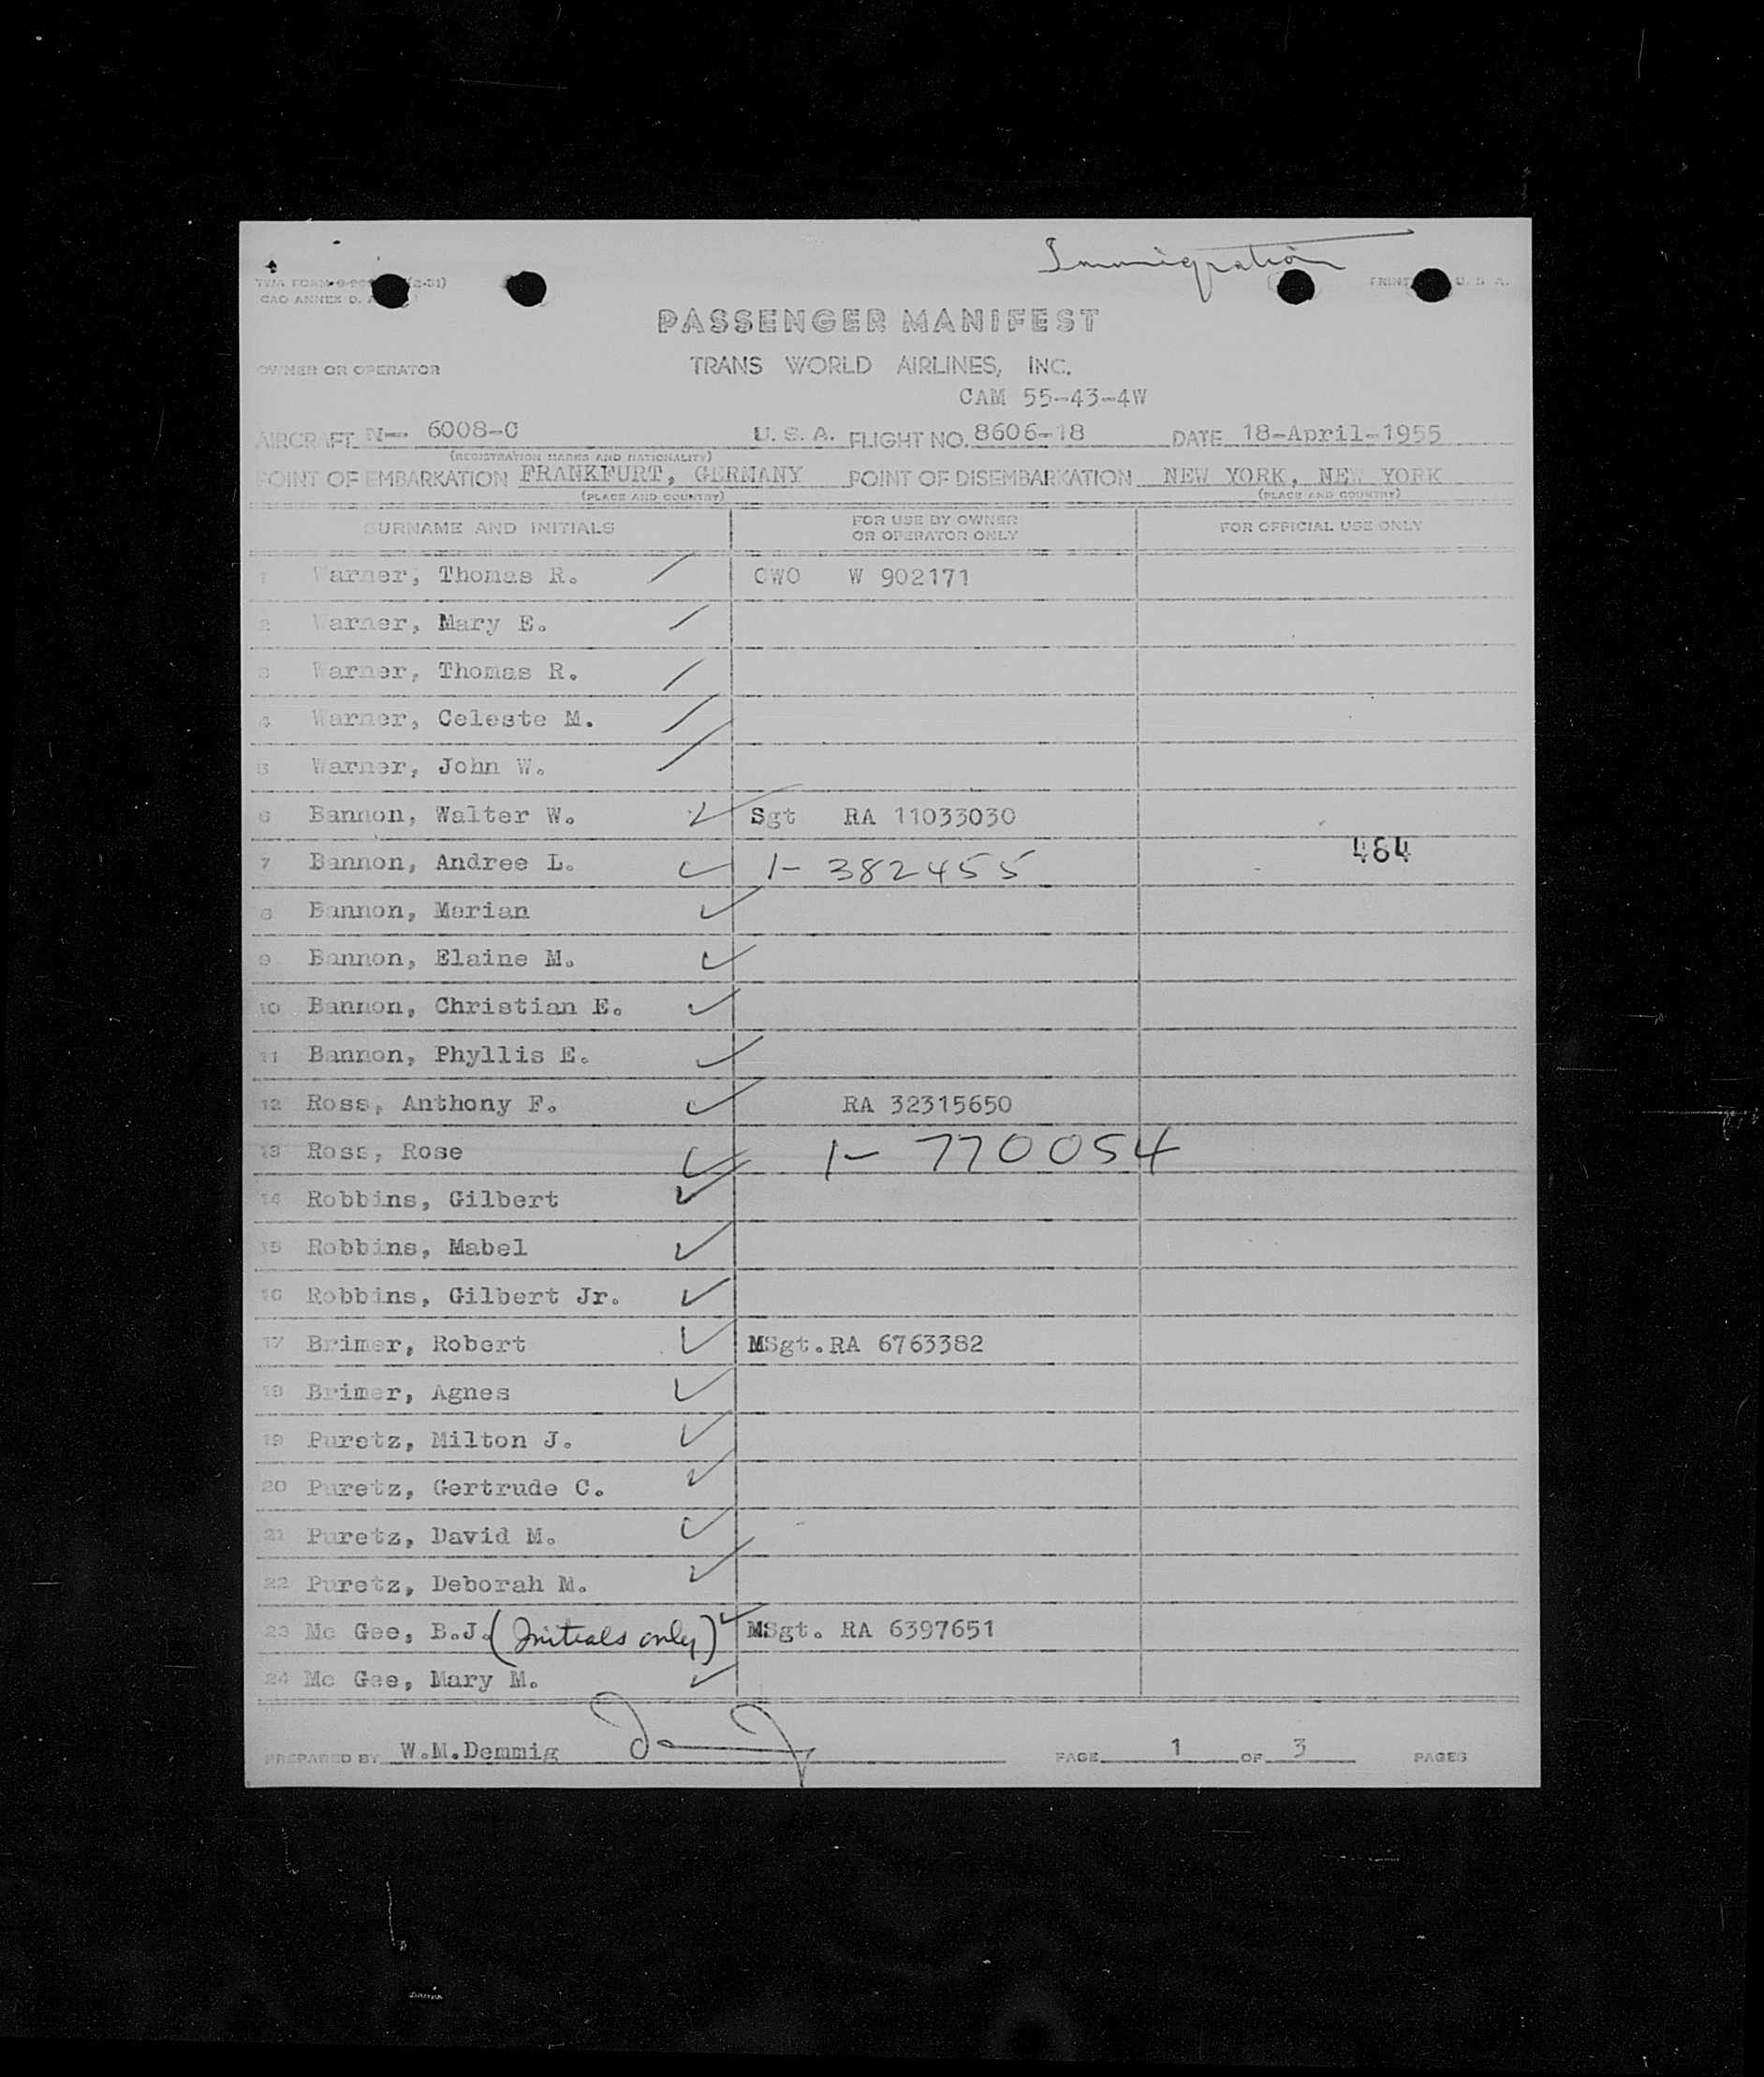 Immigration
TWA FORM (2-51)
CAO ANNEX D.
PRINT U. S. A.
PASSENGER MANIFEST
OWNER OR OPERATOR TRANS WORLD AIRLINES, INC.
CAM 55-43-4W
AIRCRAFT N- 6008-C U. S. A. FLIGHT NO. 8606-18 DATE 18-April-1955
(REGISTRATION MARKS AND NATIONALITY)
POINT OF EMBARKATION FRANKFURT, GERMANY POINT OF DISEMBARKATION NEW YORK, NEW YORK
(PLACE AND COUNTRY) (PLACE AND COUNTRY)
SURNAME AND INITIALS FOR USE BY OWNER OR OPERATOR ONLY FOR OFFICIAL USE ONLY
1 Warner, Thomas R. CWO W 902171
2 Warner, Mary E.
3 Warner, Thomas R.
4 Warner, Celeste M.
5 Warner, John W.
6 Bannon, Walter W. Sgt RA 11033030
7 Bannon, Andree L. 1- 382455 464
8 Bannon, Marian
9 Bannon, Elaine M.
10 Bannon, Christian E.
11 Bannon, Phyllis E.
12 Ross, Anthony F. RA 32315650
13 Ross, Rose 1- 770054
14 Robbins, Gilbert
15 Robbins, Mabel
16 Robbins, Gilbert Jr.
17 Brimer, Robert MSgt. RA 6763382
18 Brimer, Agnes
19 Puretz, Milton J.
20 Puretz, Gertrude C.
21 Puretz, David M.
22 Puretz, Deborah M.
23 Mc Gee, B.J. (Initials only) MSgt. RA 6397651
24 Mc Gee, Mary M.
PREPARED BY W.M.Demmig PAGE 1 OF 3 PAGES